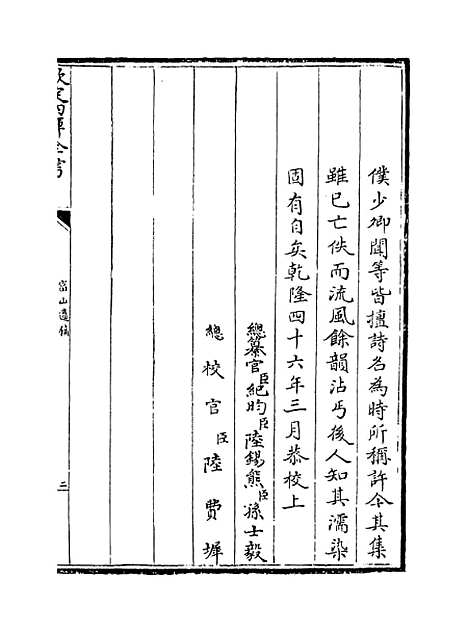 僕少卿聞等皆擅詩名為時所稱許今其集
雖已亡佚而流風餘韻沾丐後人知其濡染
固有自矣乾隆四十六年三月恭校上
總纂官臣紀昀臣陸錫熊臣孫士毅
總校官臣陸費墀
欽定四庫全書
富山遺稿
三